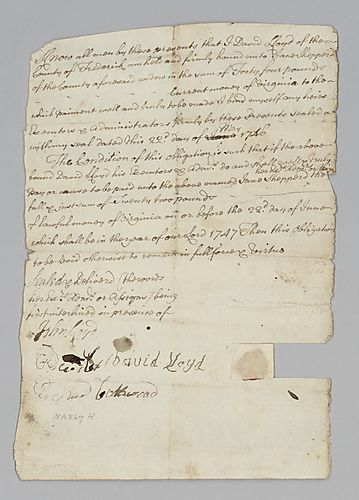 Know all men by these presents that I David Lloyd of the
County of Frederick am held and firmly bound unto Jane Shepperd
of the County aforesaid widow in the sum of Forty four pounds
Current money of Virginia to the
which paiment well and truly to be made I bind myself my heirs
Executors & administrators firmly by these presents sealed
with my seal dated this 22d day of May 1746
The Condition of this obligation is such that if the above
bound David Lloyd his Executors & Admrs do and shall well & truly
pay or cause to be paid unto the above named Jane Shepperd the
full & just sum of Twenty two pounds
of lawful money of Virginia on or before the 22d day of June
which shall be in the year of our Lord 1747 Then this obligation
to be void otherwise to remain in full force & virtue
Sealed & Delivered the words
or assigns being
first interlined in presence of
John
David Lloyd